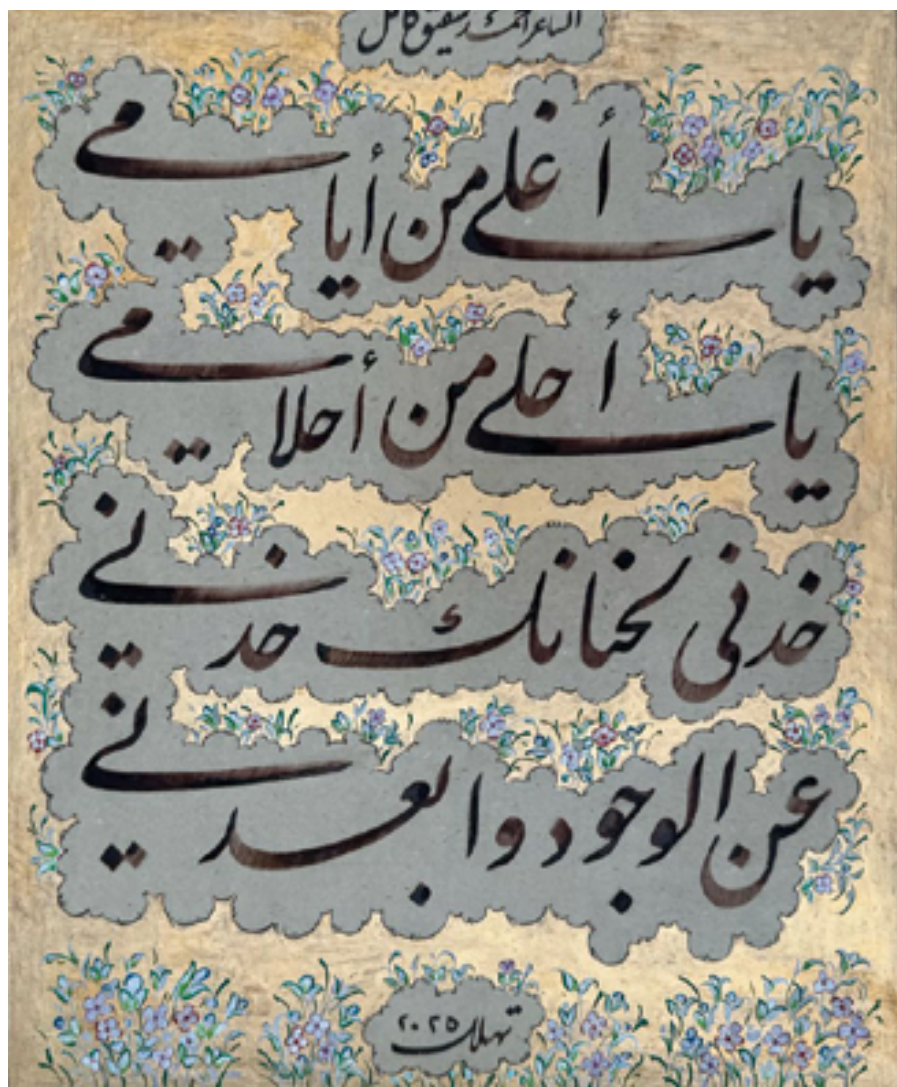 الشاعر أحمد شفيق كامل
يا أغلى من أيامي
يا أحلى من أحلامي
خدنى لحنانك خدني
عن الوجود وابعدني
٢٠٢٥